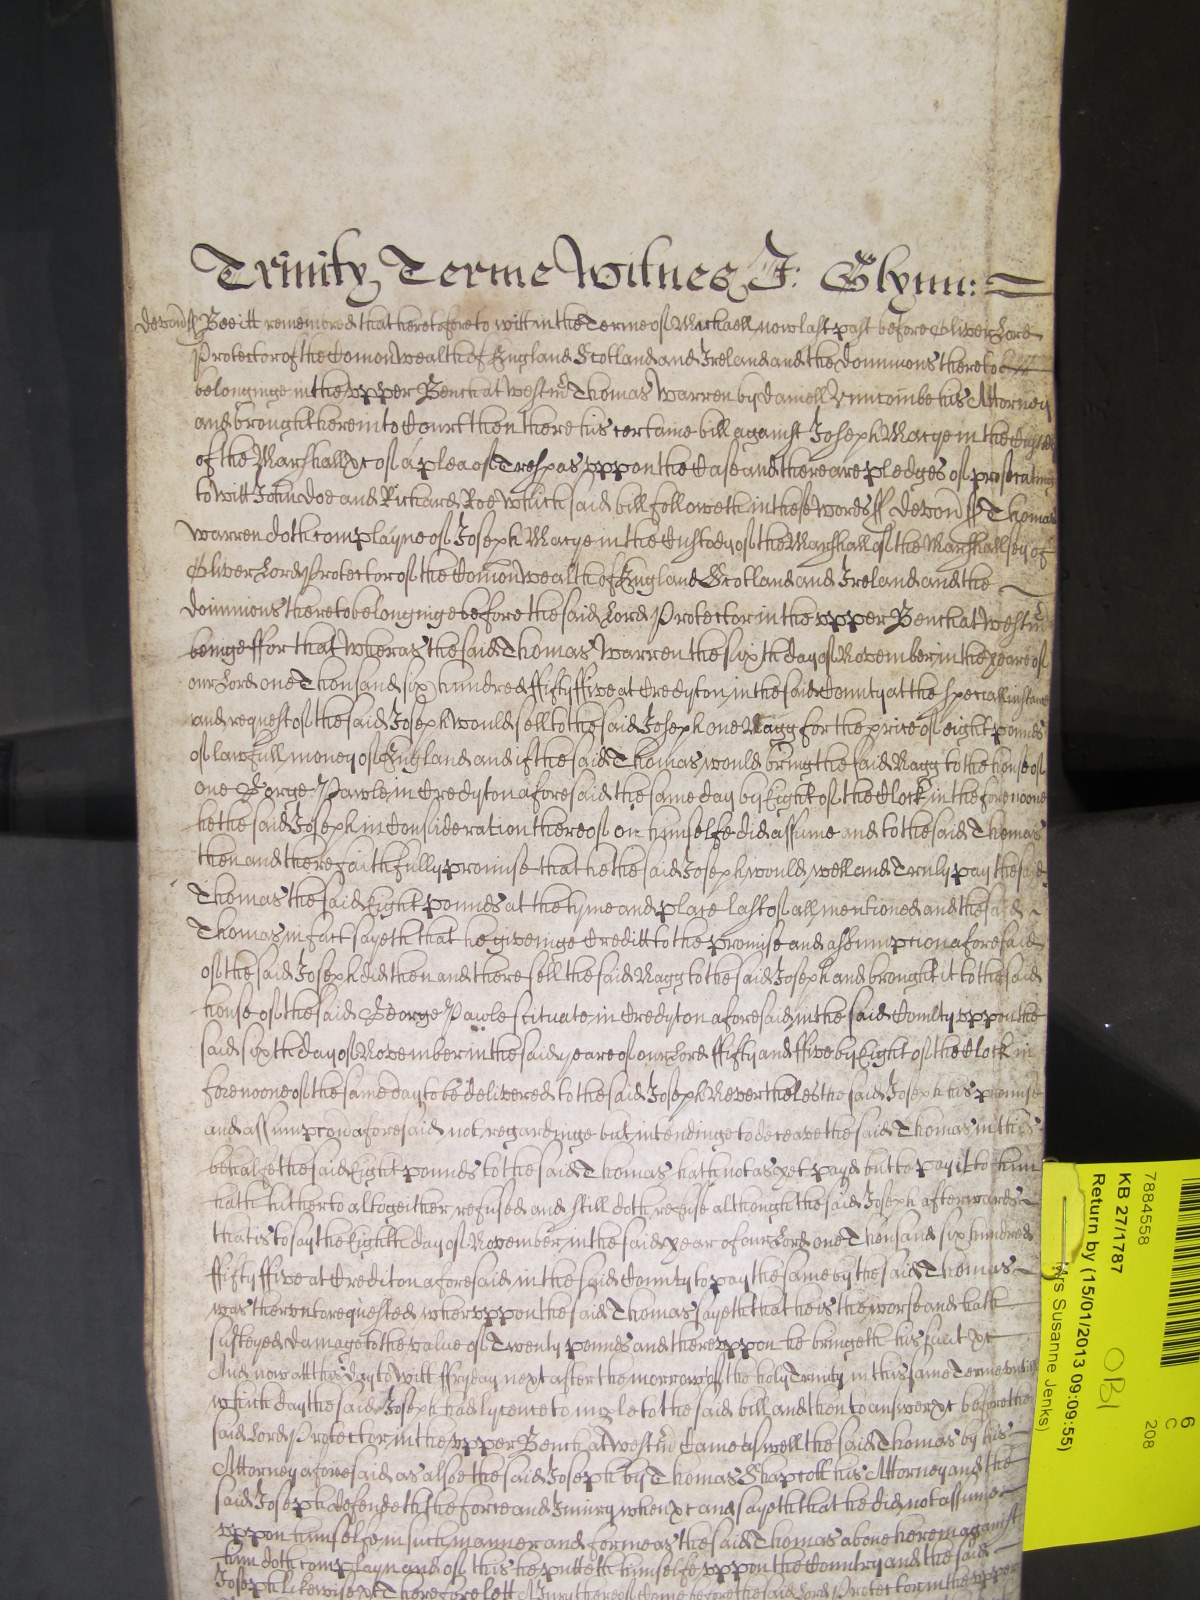 Trinity Terme Witnes J: Glynn:
Devon ss Bee itt remembred that heretofore to witt in the Terme of Michaell now last past before Oliver Lord
Protector of the Comon wealth of England Scotland and Ireland and the dominions thereto
belonginge in the vpper Bench at Westmr Thomas Warren by Daniell his Attorney
and brought here into Court then there his certaine bill against Joseph Macye in the Custody
of the Marshall &c of a plea of Trespas vppon the Case and there are pledges of prosecuting
to witt John Doe and Richard Roe which said bill followeth in these words ss Devon ss Thomas
Warren doth complayne of Joseph Macye in the Custody of the Marshall of the Marshallsey of
Oliver Lord Protector of the Comon wealth of England Scotland and Ireland and the
dominions thereto belonginge before the said Lord Protector in the vpper Bench at Westmr
beinge ffor that wheras the said Thomas Warren the sixth day of November in the yeare of
our Lord one Thousand six hundred ffifty ffive at Credyton in the said County at the speciall instance
and request of the said Joseph would sell to the said Joseph one Nagg for the price of eight pounds
of lawfull money of England and if the said Thomas would bring the said Nagg to the house of
one George Pawle in Credyton aforesaid the same day by Eight of the Clock in the forenoone
he the said Joseph in Consideration thereof on himselfe did assume and to the said Thomas
then and there faithfully promise that he the said Joseph would well and Truly pay the said
Thomas the said Eight pounds at the tyme and place last of all mentioned and the said
Thomas in fact sayeth that he giveinge Creditt to the promise and assumpcion aforesaid
of the said Joseph did then and there sell the said Nagg to the said Joseph and brought it to the said
house of the said George Pawle scituate in Credyton aforesaid in the said County vppon the
said sixth day of November in the said yeare of our Lord ffifty and ffive by Eight of the Clock in
forenoone of the same day to be delivered to the said Joseph Neverthelesse the said Joseph his promise
and assumpcon aforesaid not regardinge but intendinge to deceave the said Thomas in this
behalfe the said Eight pounds to the said Thomas hath not as yet payd but to pay it to him
hath hitherto altogeither refused and still doth refuse although the said Joseph afterwards
that is to say the Eighth day of November in the said year of our Lord one Thousand six hundred
ffifty ffive at Crediton aforesaid in the said County to pay the same by the said Thomas
was therevnto requested whervppon the said Thomas sayeth that he is the worse and hath
susteyed damage to the value of Twenty pounds and therevppon he bringeth his suit &c
And now att this day to witt ffryday next after the morrow of the holy Trinity in this same Terme vntill
which day the said Joseph had lycence to imparle to the said bill and then to answer &c before the
said Lord Protector in the vpper Bench at Westmr Came as well the said Thomas by his
Attorney aforesaid as alsoe the said Joseph by Thomas Shapcott his Attorney and the
said Joseph defendeth the force and Iniury when &c and sayeth that he did not assume
vppon himselfe in such manner and forme as the said Thomas above herein against
him doth complayn and of this he putteth himselfe vppon the Country and the said
Joseph likewise &c Therefore lett a Jury thereof Come before the said Lord Protector in the vpper
7884558
KB 27/1787
Return by (15/01/2013 09:09:55)
Mrs Susanne Jenks)
OBI
6
C
208